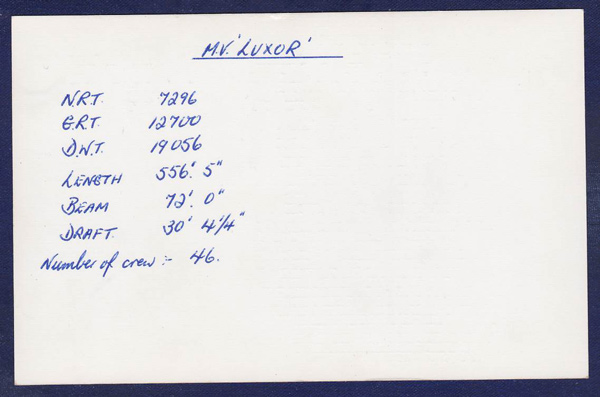 M.V. 'LUXOR'
N.R.T. 7296
G.R.T. 12700
D.W.T. 19056
LENGTH 556'. 5"
BEAM 72'. 0"
DRAFT. 30' 4 1/4"
Number of crew :- 46.